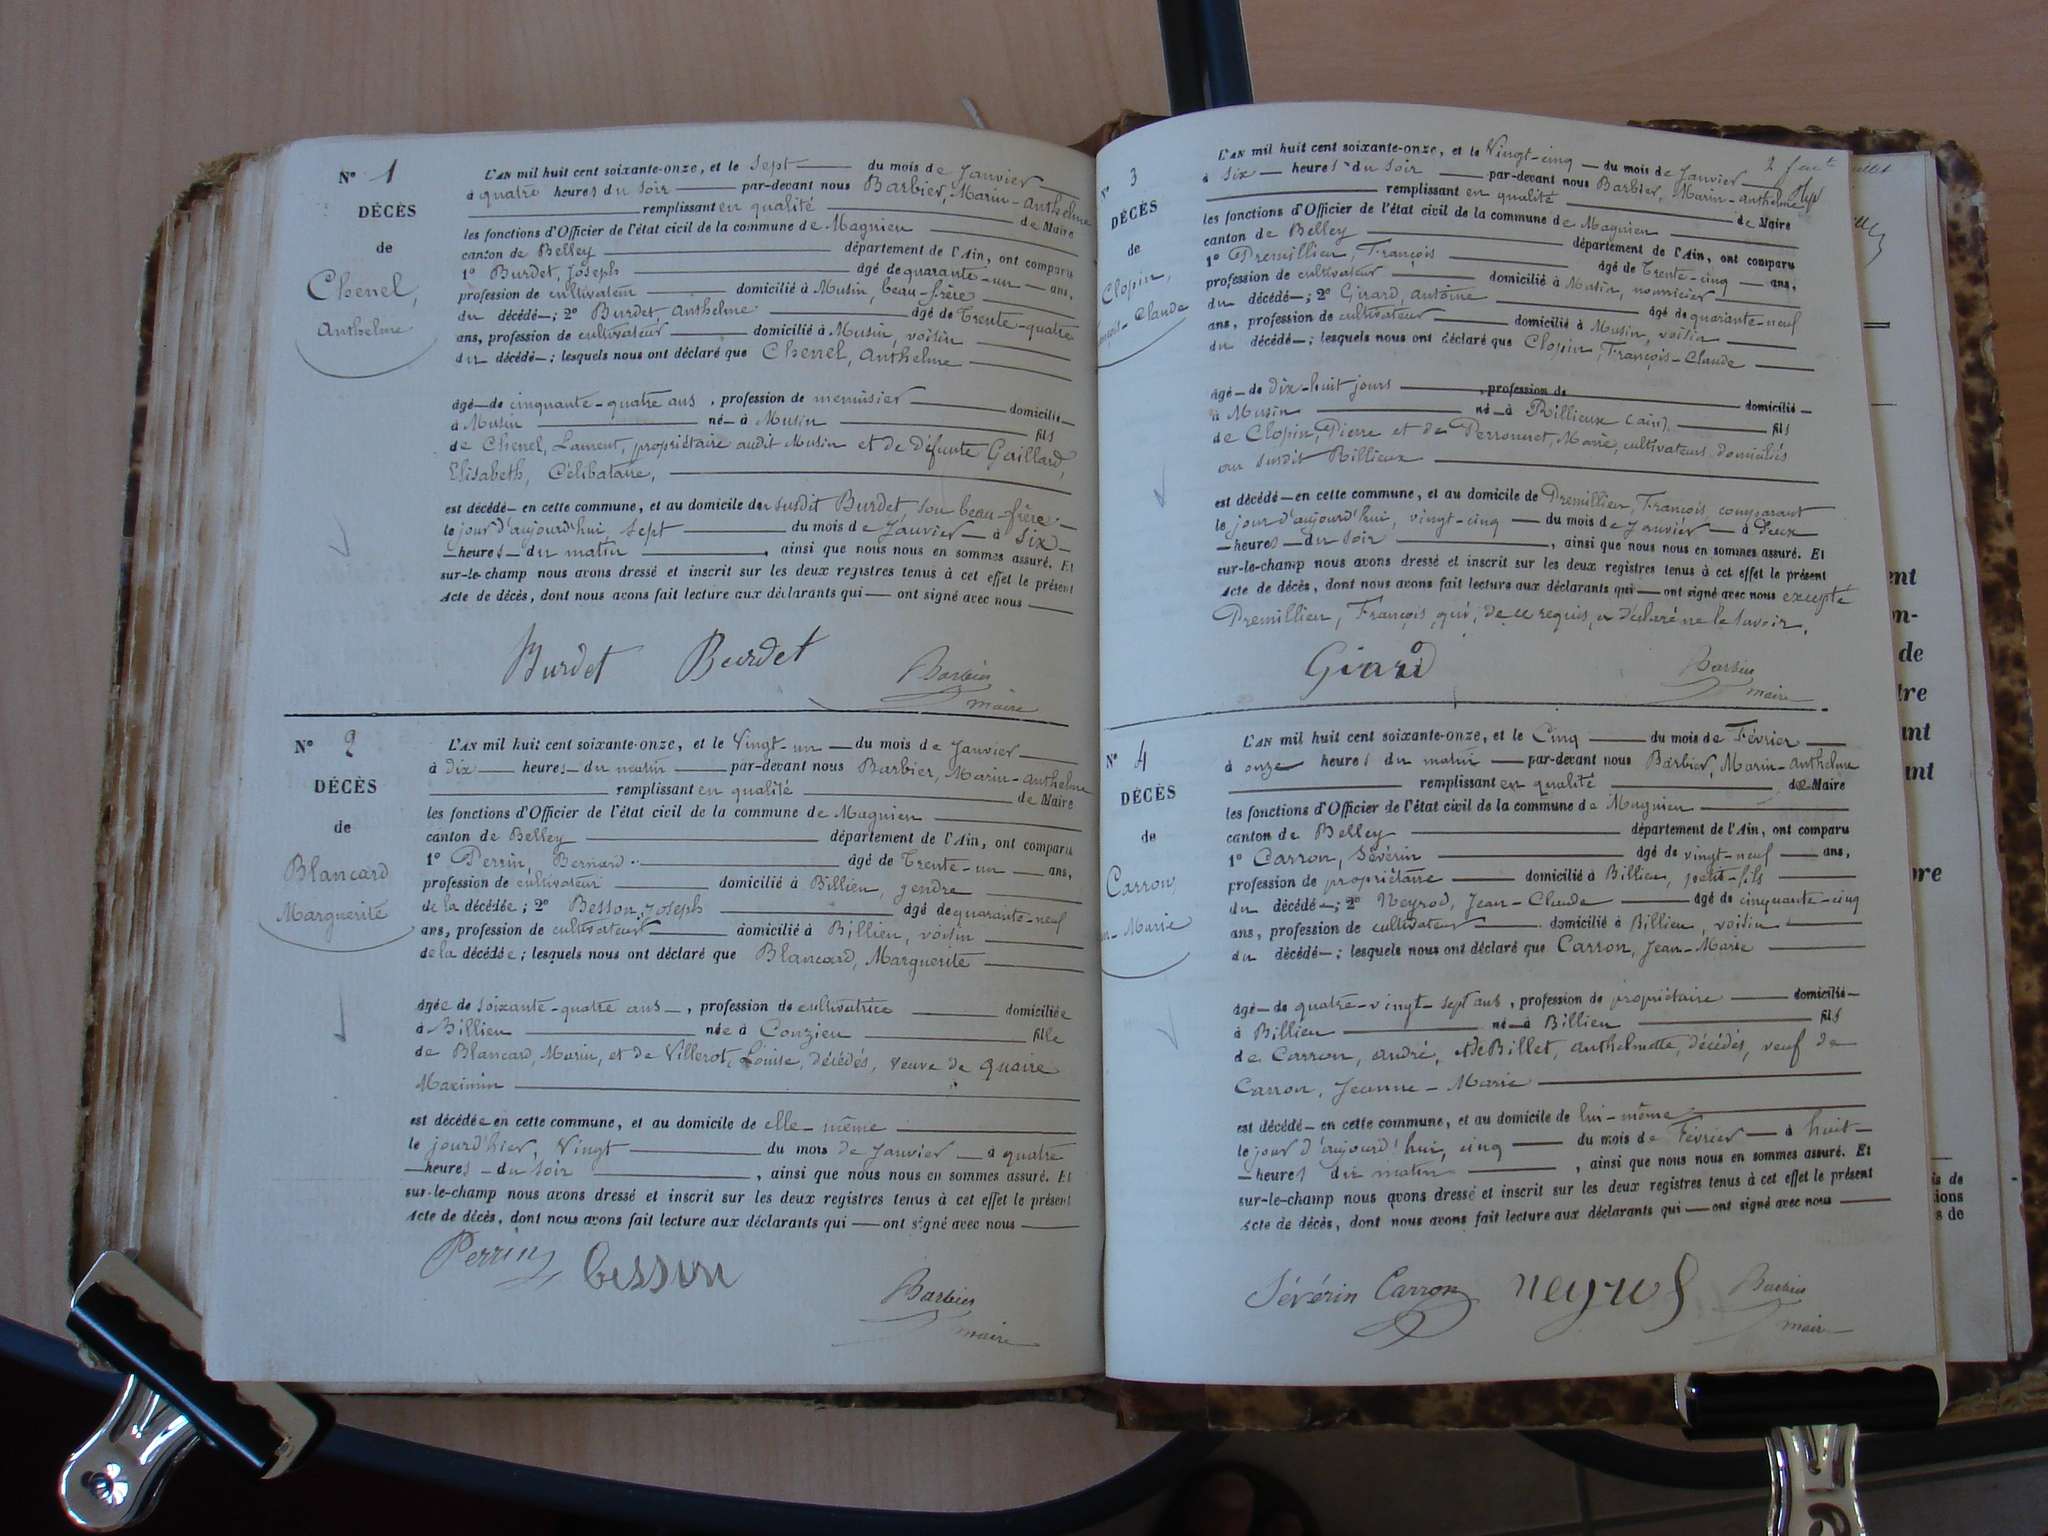 N° 1
DÉCÈS
de
Chenel,
Anthelme
L'AN mil huit cent soixante-onze, et le sept du mois de Janvier
à quatre heures du soir par-devant nous Barbier, Marin-Anthelme
remplissant en qualité de Maire
les fonctions d'Officier de l'état civil de la commune de Magnieu
canton de Belley département de l'Ain, ont comparu
1° Burdet, Joseph âgé de quarante-un ans,
profession de cultivateur domicilié à Musin, beau-frère
du décédé; 2° Burdet, Anthelme âgé de Trente-quatre
ans, profession de cultivateur domicilié à Musin, voisin
du décédé; lesquels nous ont déclaré que Chenel, Anthelme
âgé de cinquante-quatre ans, profession de menuisier domicilié
à Musin né à Musin fils
de Chenel, Laurent, propriétaire audit Musin et de défunte Gaillard,
Elisabeth, Célibataire,
est décédé en cette commune, et au domicile du susdit Burdet son beau-frère
le jour d'aujourd'hui, sept du mois de Janvier à six
heures du matin, ainsi que nous nous en sommes assuré. Et
sur-le-champ nous avons dressé et inscrit sur les deux registres tenus à cet effet le présent
Acte de décès, dont nous avons fait lecture aux déclarants qui ont signé avec nous
Burdet Burdet Barbier
maire
N° 2
DÉCÈS
de
Blancard
Marguerite
L'AN mil huit cent soixante-onze, et le Vingt-un du mois de Janvier
à dix heures du matin par-devant nous Barbier, Marin-Anthelme
remplissant en qualité de Maire
les fonctions d'Officier de l'état civil de la commune de Magnieu
canton de Belley département de l'Ain, ont comparu
1° Perrin, Bernard âgé de Trente-un ans,
profession de cultivateur domicilié à Billieu, gendre
de la décédée; 2° Besson, Joseph âgé de quarante-neuf
ans, profession de cultivateur domicilié à Billieu, voisin
de la décédée; lesquels nous ont déclaré que Blancard, Marguerite
âgée de soixante-quatre ans, profession de cultivatrice domiciliée
à Billieu née à Conzieu fille
de Blancard, Marin, et de Villerot, Louise, décédés, veuve de Quaire
Maximin
est décédée en cette commune, et au domicile de elle-même
le jour d'hier, Vingt du mois de Janvier à quatre
heures du soir, ainsi que nous nous en sommes assuré. Et
sur-le-champ nous avons dressé et inscrit sur les deux registres tenus à cet effet le présent
Acte de décès, dont nous avons fait lecture aux déclarants qui ont signé avec nous
Perrin Besson Barbier
maire
N° 3
DÉCÈS
de
Clopin,
Claude
L'AN mil huit cent soixante-onze, et le Vingt-cinq du mois de Janvier
à six heures du soir par-devant nous Barbier, Marin-Anthelme
remplissant en qualité de Maire
les fonctions d'Officier de l'état civil de la commune de Magnieu
canton de Belley département de l'Ain, ont comparu
1° Premillieu, François âgé de Trente-cinq ans,
profession de cultivateur domicilié à Musin, nourricier
du décédé; 2° Girard, Antoine âgé de quarante-neuf
ans, profession de cultivateur domicilié à Musin, voisin
du décédé; lesquels nous ont déclaré que Clopin, François-Claude
âgé de dix-huit jours, profession de domicilié
à Musin né à Rillieux (Ain), fils
de Clopin, Pierre et de Perrouret, Marie, cultivateurs domiciliés
au susdit Rillieux
est décédé en cette commune, et au domicile de Premillieu, François, comparant
le jour d'aujourd'hui, vingt-cinq du mois de Janvier à Deux
heures du soir, ainsi que nous nous en sommes assuré. Et
sur-le-champ nous avons dressé et inscrit sur les deux registres tenus à cet effet le présent
Acte de décès, dont nous avons fait lecture aux déclarants qui ont signé avec nous excepté
Premillieu, François, qui, de ce requis, a déclaré ne le savoir.
Girard Barbier
maire
N° 4
DÉCÈS
de
Carron,
Marie
L'AN mil huit cent soixante-onze, et le Cinq du mois de Février
à onze heures du matin par-devant nous Barbier, Marin-Anthelme
remplissant en qualité de Maire
les fonctions d'Officier de l'état civil de la commune de Magnieu
canton de Belley département de l'Ain, ont comparu
1° Carron, Sévérin âgé de vingt-neuf ans,
profession de propriétaire domicilié à Billieu, petit-fils
du décédé; 2° Neyrod, Jean-Claude âgé de cinquante-cinq
ans, profession de cultivateur domicilié à Billieu, voisin
du décédé; lesquels nous ont déclaré que Carron, Jean-Marie
âgé de quatre-vingt-sept ans, profession de propriétaire domicilié
à Billieu né à Billieu fils
de Carron, André, et de Billet, Anthelmette, décédés, veuf de
Carron, Jeanne-Marie
est décédé en cette commune, et au domicile de lui-même
le jour d'aujourd'hui, cinq du mois de Février à huit
heures du matin, ainsi que nous nous en sommes assuré. Et
sur-le-champ nous avons dressé et inscrit sur les deux registres tenus à cet effet le présent
Acte de décès, dont nous avons fait lecture aux déclarants qui ont signé avec nous
Sévérin Carron Neyrod Barbier